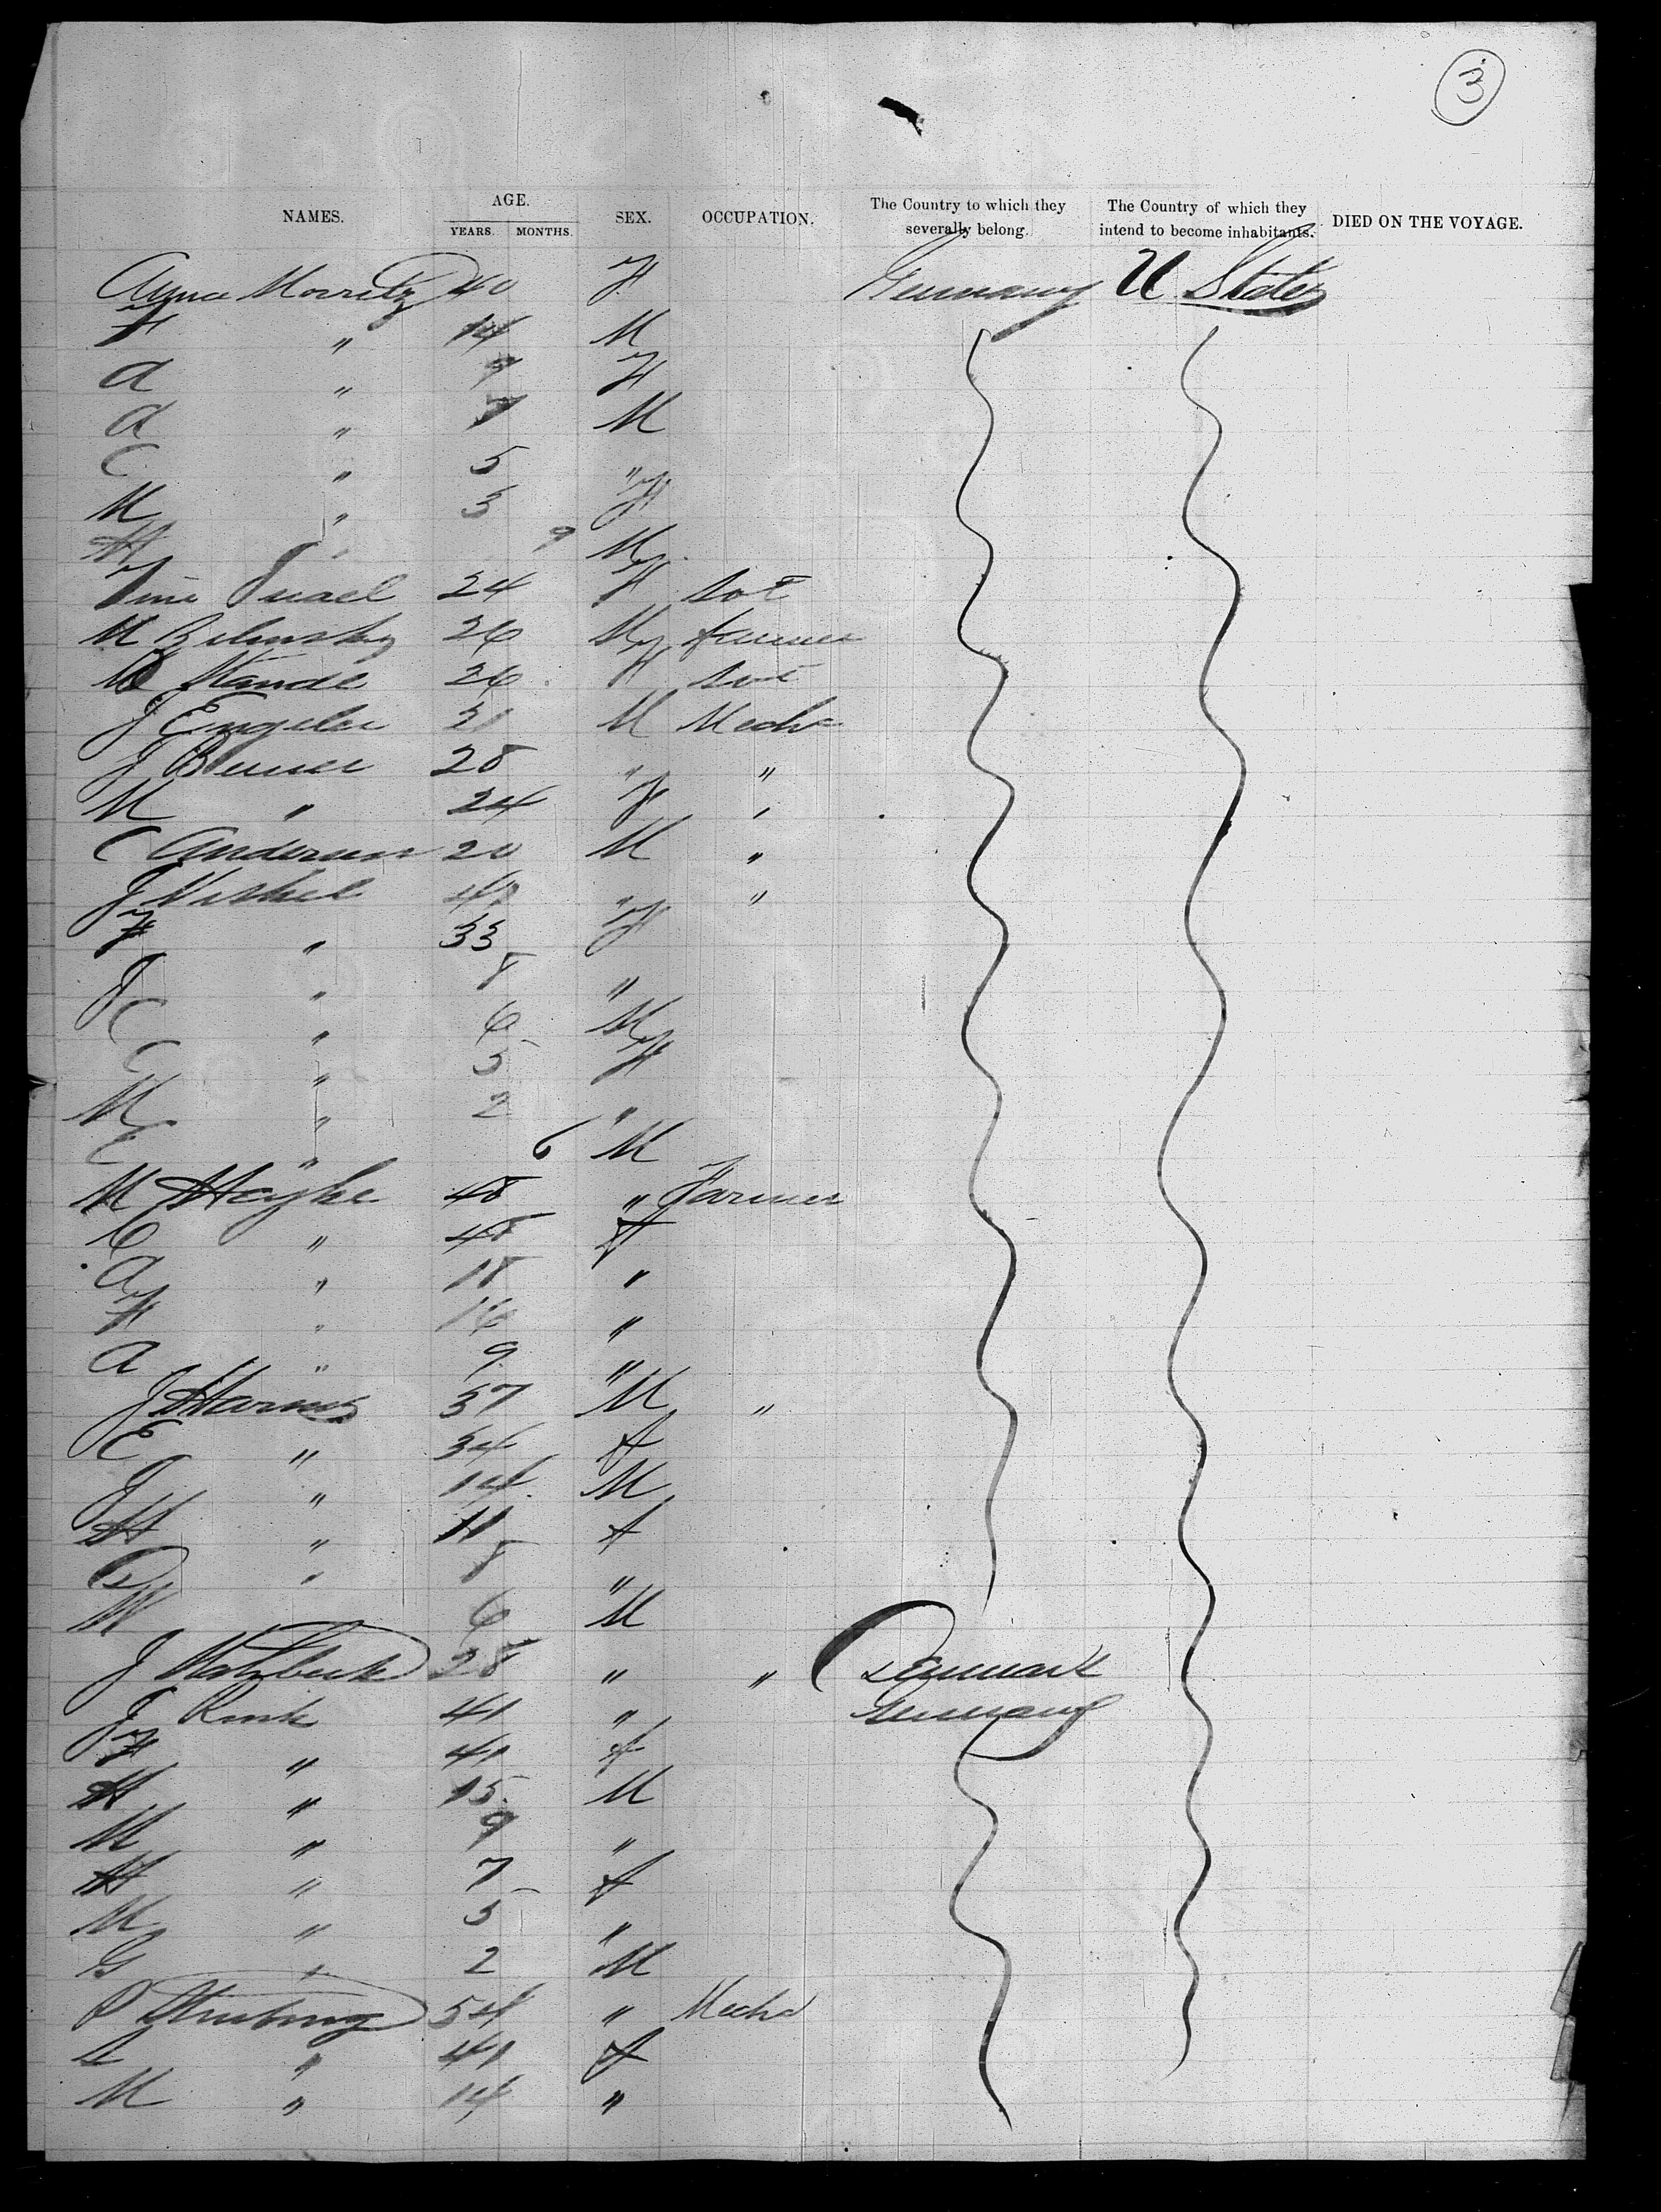 3
NAMES. AGE. YEARS. MONTHS. SEX. OCCUPATION. The Country to which they severally belong. The Country of which they intend to become inhabitants. DIED ON THE VOYAGE.
Anna Morritz 40 F Germany U States
F " 14 M
A " 9 F
A " 7 M
C " 5 "
M " 3 F
H " 9 M
24 F Svt
M 26 M farmer
26 F Svt
J Engeler M Mecha
J 28 " "
M " 24 F "
C Andersen 20 M "
J " "
F " 33 F
J " 8 "
C " 6 M
C " 5 F
M " 2 "
E " 6 M
M Heyke 48 " Farmer
C " 48 F
A " 18 "
F " 16 "
A " 9 "
J Harms 37 M "
E " 34 F
J " 14 M
H " 11 F
D " 8 "
W 6 M
J 28 " " Denmark
J Rink 41 " Germany
F " 41 f
H " 15 M
M " 9 "
H " 7 f
M " 5 "
G " 2 M
P Strubing 54 " Mecha
L " 41 f
M " 14 "